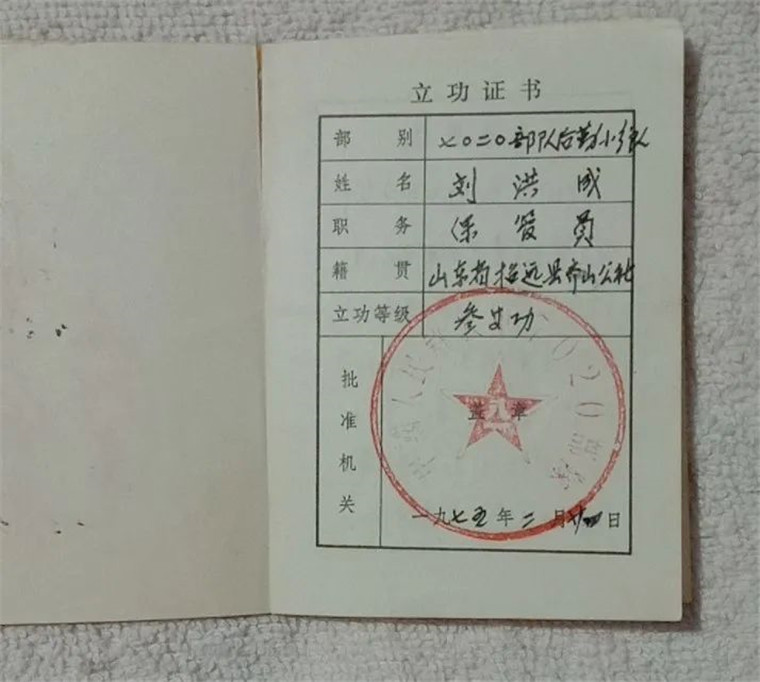 立功证书
部别 七〇二〇部队后勤小分队
姓名 刘洪成
职务 保管员
籍贯 山东省招远县齐山公社
立功等级 叁等功
批准机关
盖章
八一
7020部队
一九七五年二月廿四日